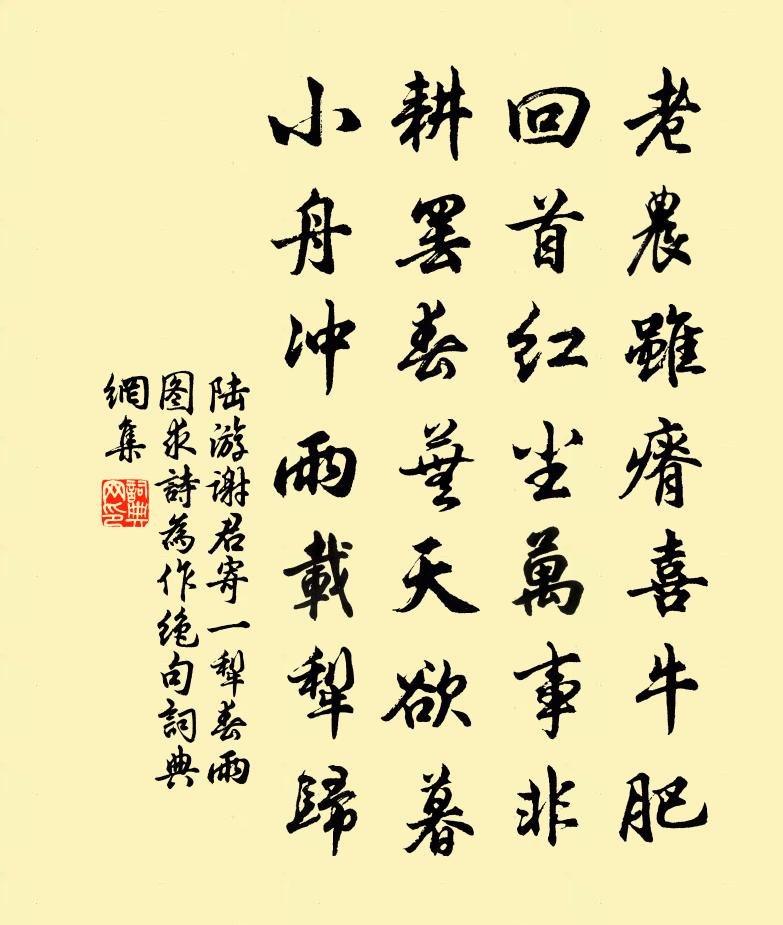 老農雖瘠喜牛肥
回首紅塵萬事非
耕罷春蕪天欲暮
小舟冲雨載犁歸
陸游謝君寄一犁春雨
圖求詩為作绝句詞典
網集
詞典
网印